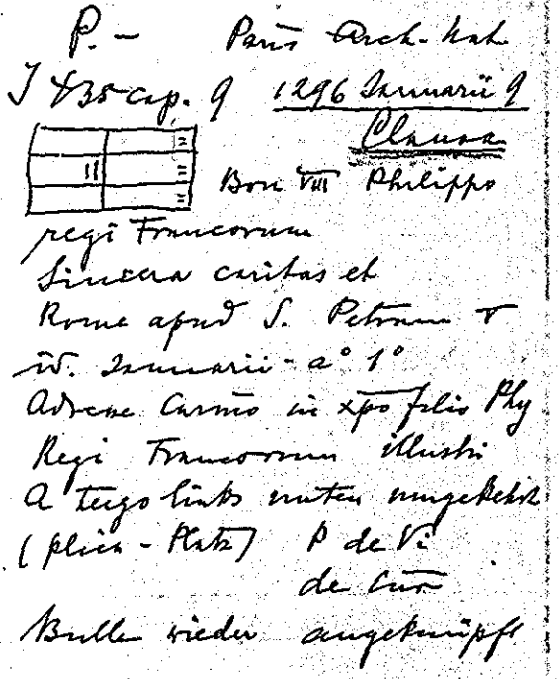 P. - Paris Arch. Nat
J 735 cap. 9 1296 Januarii 9
Clausa
Bon VIII Philippo
regi Francorum
Sincera caritas et
Rome apud S. Petrum V
id. Januarii - a° 1°
Adresse Carmo in xpo filio Phy
Regi Francorum illustri
A tergo links unten umgekehrt
(plica - Platz) P de Vi
de Cur
Bulle wieder angeknüpft